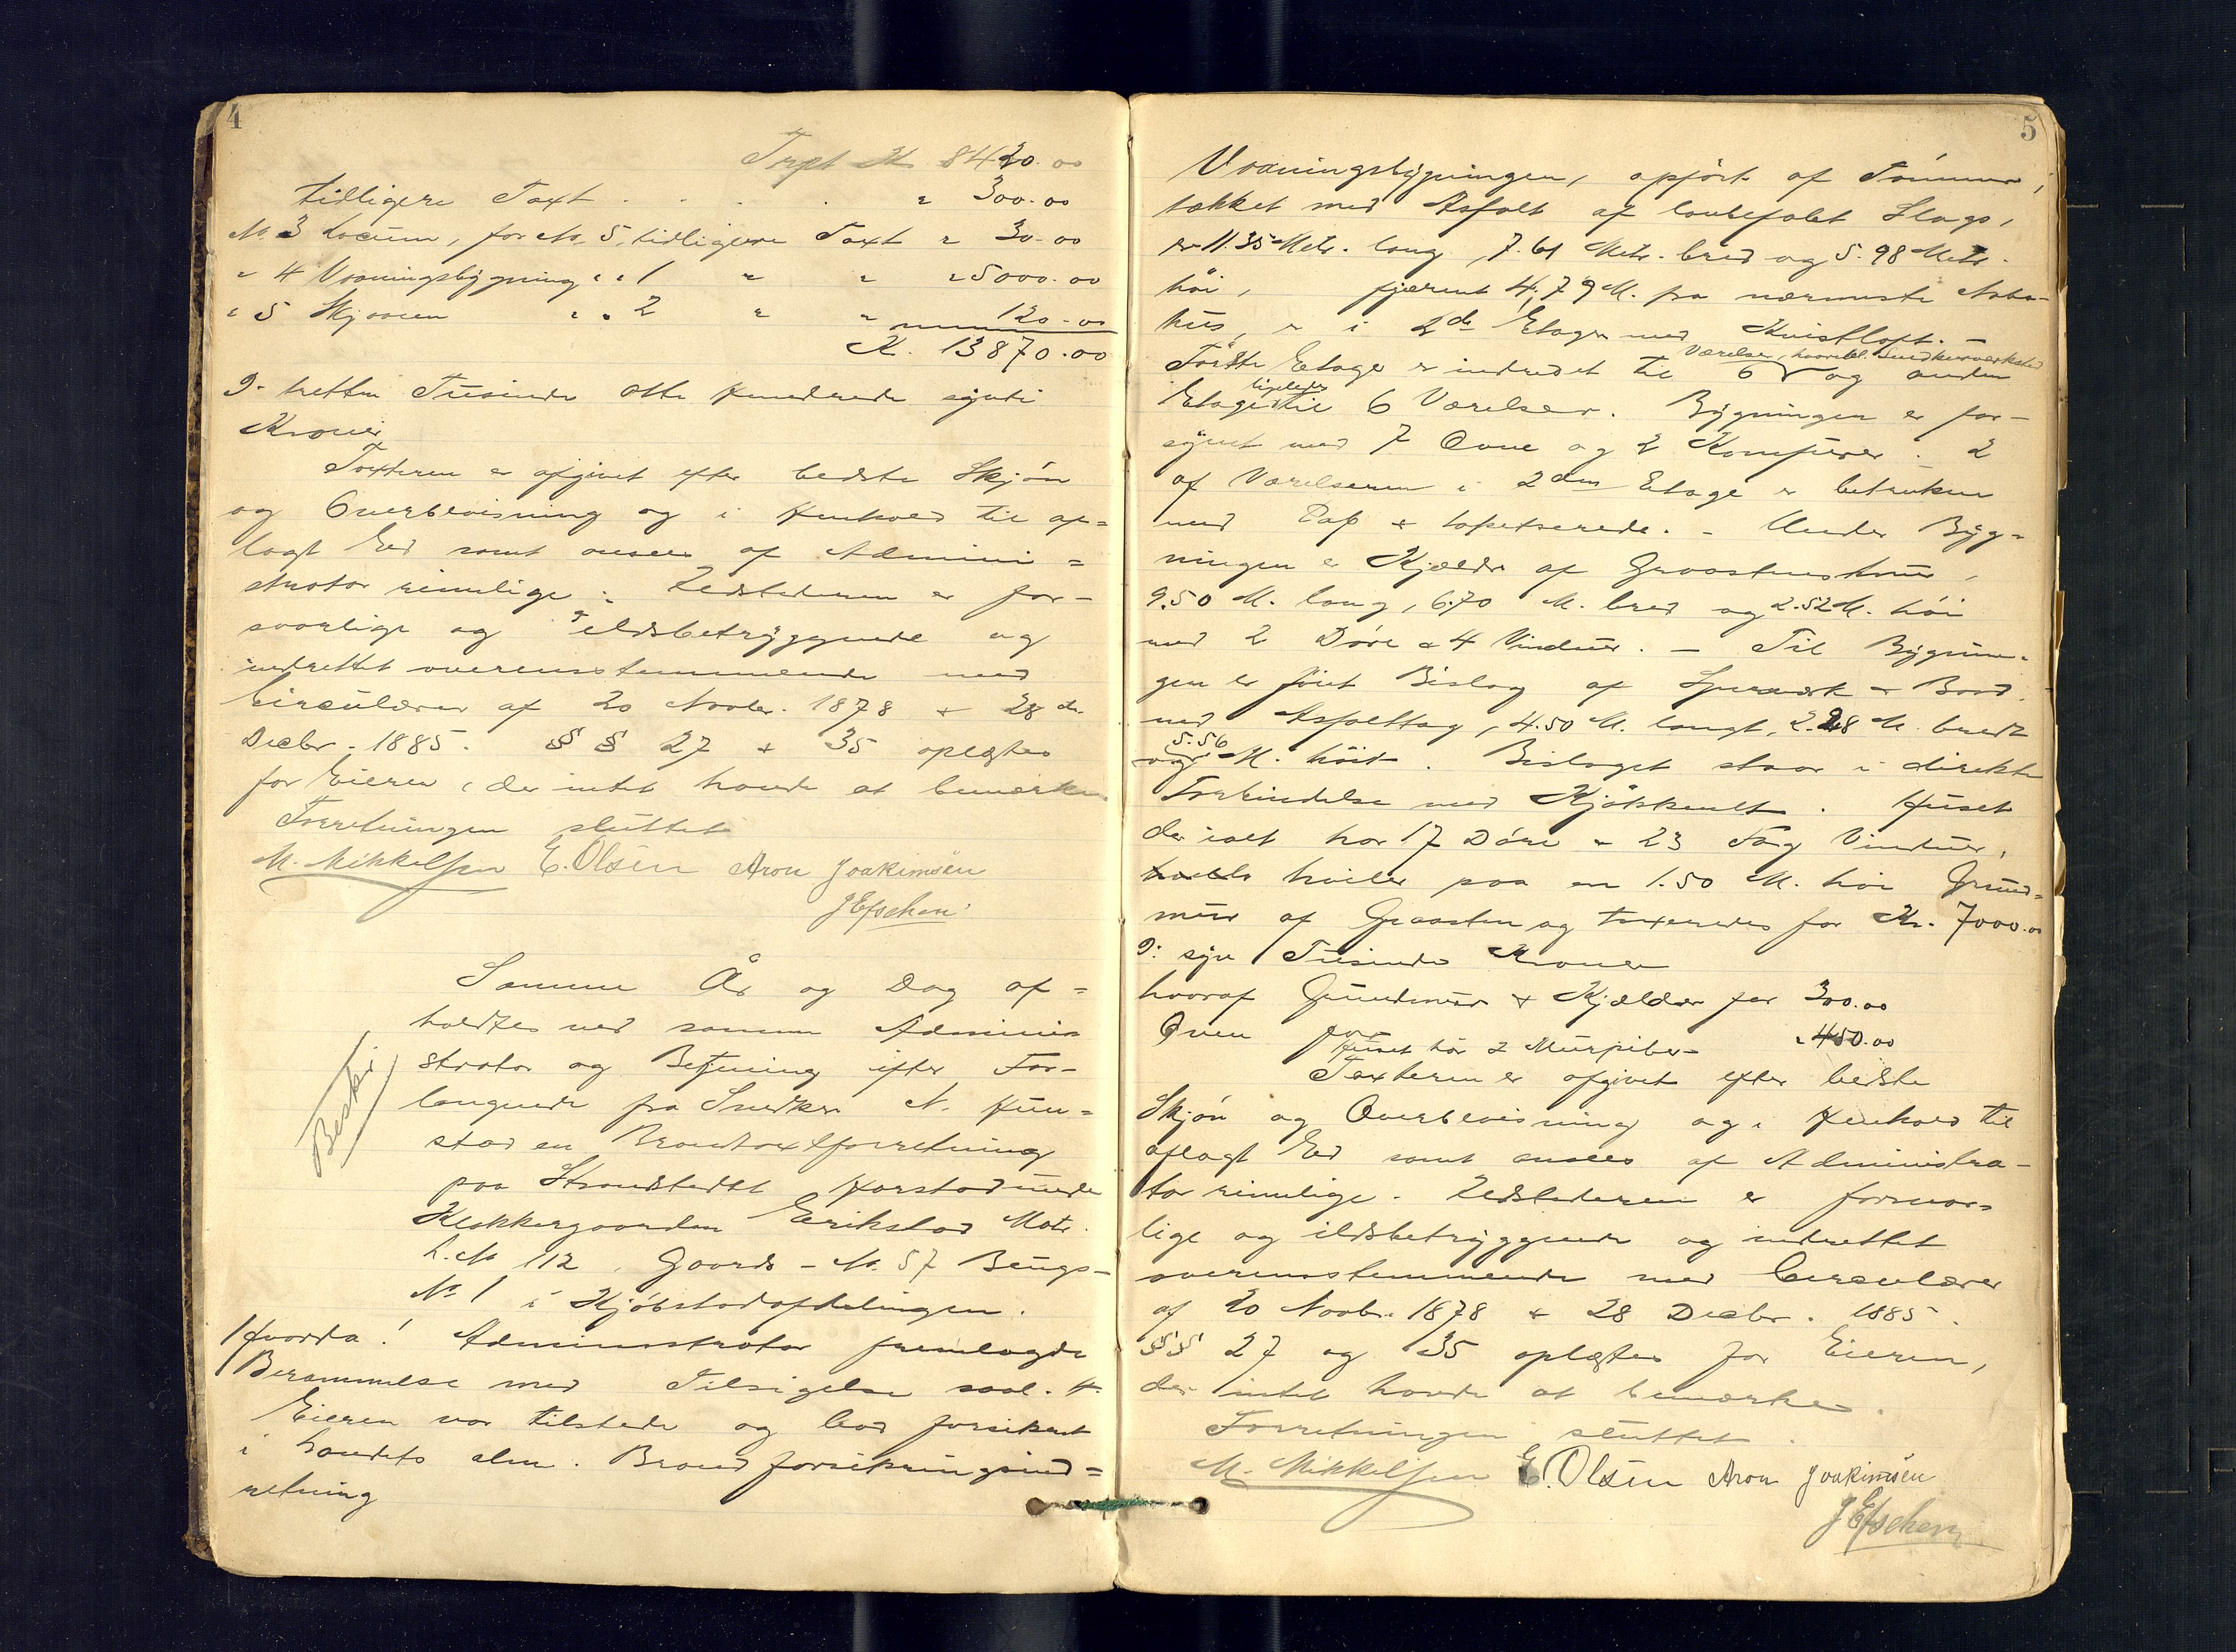 4
Trspt K 8420.00
tidligere Taxt . . . . " 300.00
No. 3 Locum, for No. 5, tidligere Taxt " 30.00
" 4 Vaaningsbygning " " 1 " " " 5000.00
" 5 Skjaaen " " 2 " " 120.00
K. 13870.00
ɔ: tretten Tusinde otte Hundrede sytti
Kroner
Taxteren er afgivet efter bedste Skjön
og Overbevisning og i Henhold til af=
lagt Ed samt ansees af Admini=
strator rimelige. Ildstederne er for-
svarlige og ildsbetryggende og
indrettet overensstemmende med
Circulærer af 20 Novbr. 1878 & 28de
Decbr. 1885. §§ 27 & 35 oplæstes
for Eieren, der intet havde at bemærke.
Forretningen sluttet
M. Mikkelsen E. Olsen Aron Joakimsen
JEschen
Samme År og Dag af=
holdtes ved samme Adminis
strator og Betjening efter For-
langende fra Snedker N. Hun=
stad en Brandtaxtforretning
paa Strandstedet Harstad under
Klokkergaarden Erikstad Matr.
L.No 112, Gaards-No. 57 Bugs-
No 1 i Kjöbstadafdelingen.
Besked
Hvorda! Administrator fremlagde
Berammelse med Tilsigelse saal.
Eieren var tilstede og bad forsikret
i Landets alm. Brandforsikringsind=
retning
5
Vaaningsbygningen, opfört af Tömmer,
tækket med Asfalt af lovbefalet Slags,
er 11.35 Metr. lang, 7.61 Metr. bred og 5.98 Metr.
höi, fjernet 4,79 M. fra nærmeste Nabo-
hus, er i 2de Etager med Kvistloft. –
Værelser, hvoribl. Snedkerværksted
Första Etage er indredet til 6 og anden
ligeledes
Etage til 6 Værelser. Bygningen er for-
synet med 7 Ovne og 2 Komfurer. 2
af Værelserne i 2den Etage er betrukne
med Pap & tapetserede. – Under Byg-
ningen er Kjælder af Graastensmur,
9.50 M. lang, 6.70 M. bred og 2.52 M. höi
med 2 Döre & 4 Vinduer. – Til Bygnin-
gen er föiet Bislag af Sperverk & Bord
med Asfalttag, 4.50 M. langt, 2.28 M. bredt
5.56
og M. höit. Bislaget staar i direkte
Forbindelse med Kjökkenet. Huset
der ialt har 17 Döre & 23 Fag Vinduer,
hviler paa en 1.50 M. höi Grund=
mur af Graasten og taxeredes for Kr. 7000.00
ɔ: syv Tusinde Kroner
hvoraf Grundmur & Kjælder for 300.00
Ovne for " 450.00
Huset har 2 Murpiber
Taxteren er afgivet efter bedste
Skjön og Overbevisning og i Henhold til
aflagt Ed samt ansees af Administra-
tor rimelige. Ildstederne er forsvar-
lige og ildsbetryggende og indrettet
overensstemmende med Circulærer
af 20 Novbr. 1878 & 28 Decbr. 1885.
§§ 27 og 35 oplæstes for Eieren,
der intet havde at bemærke.
Forretningen sluttet.
M. Mikkelsen E. Olsen Aron Joakimsen
JEschen